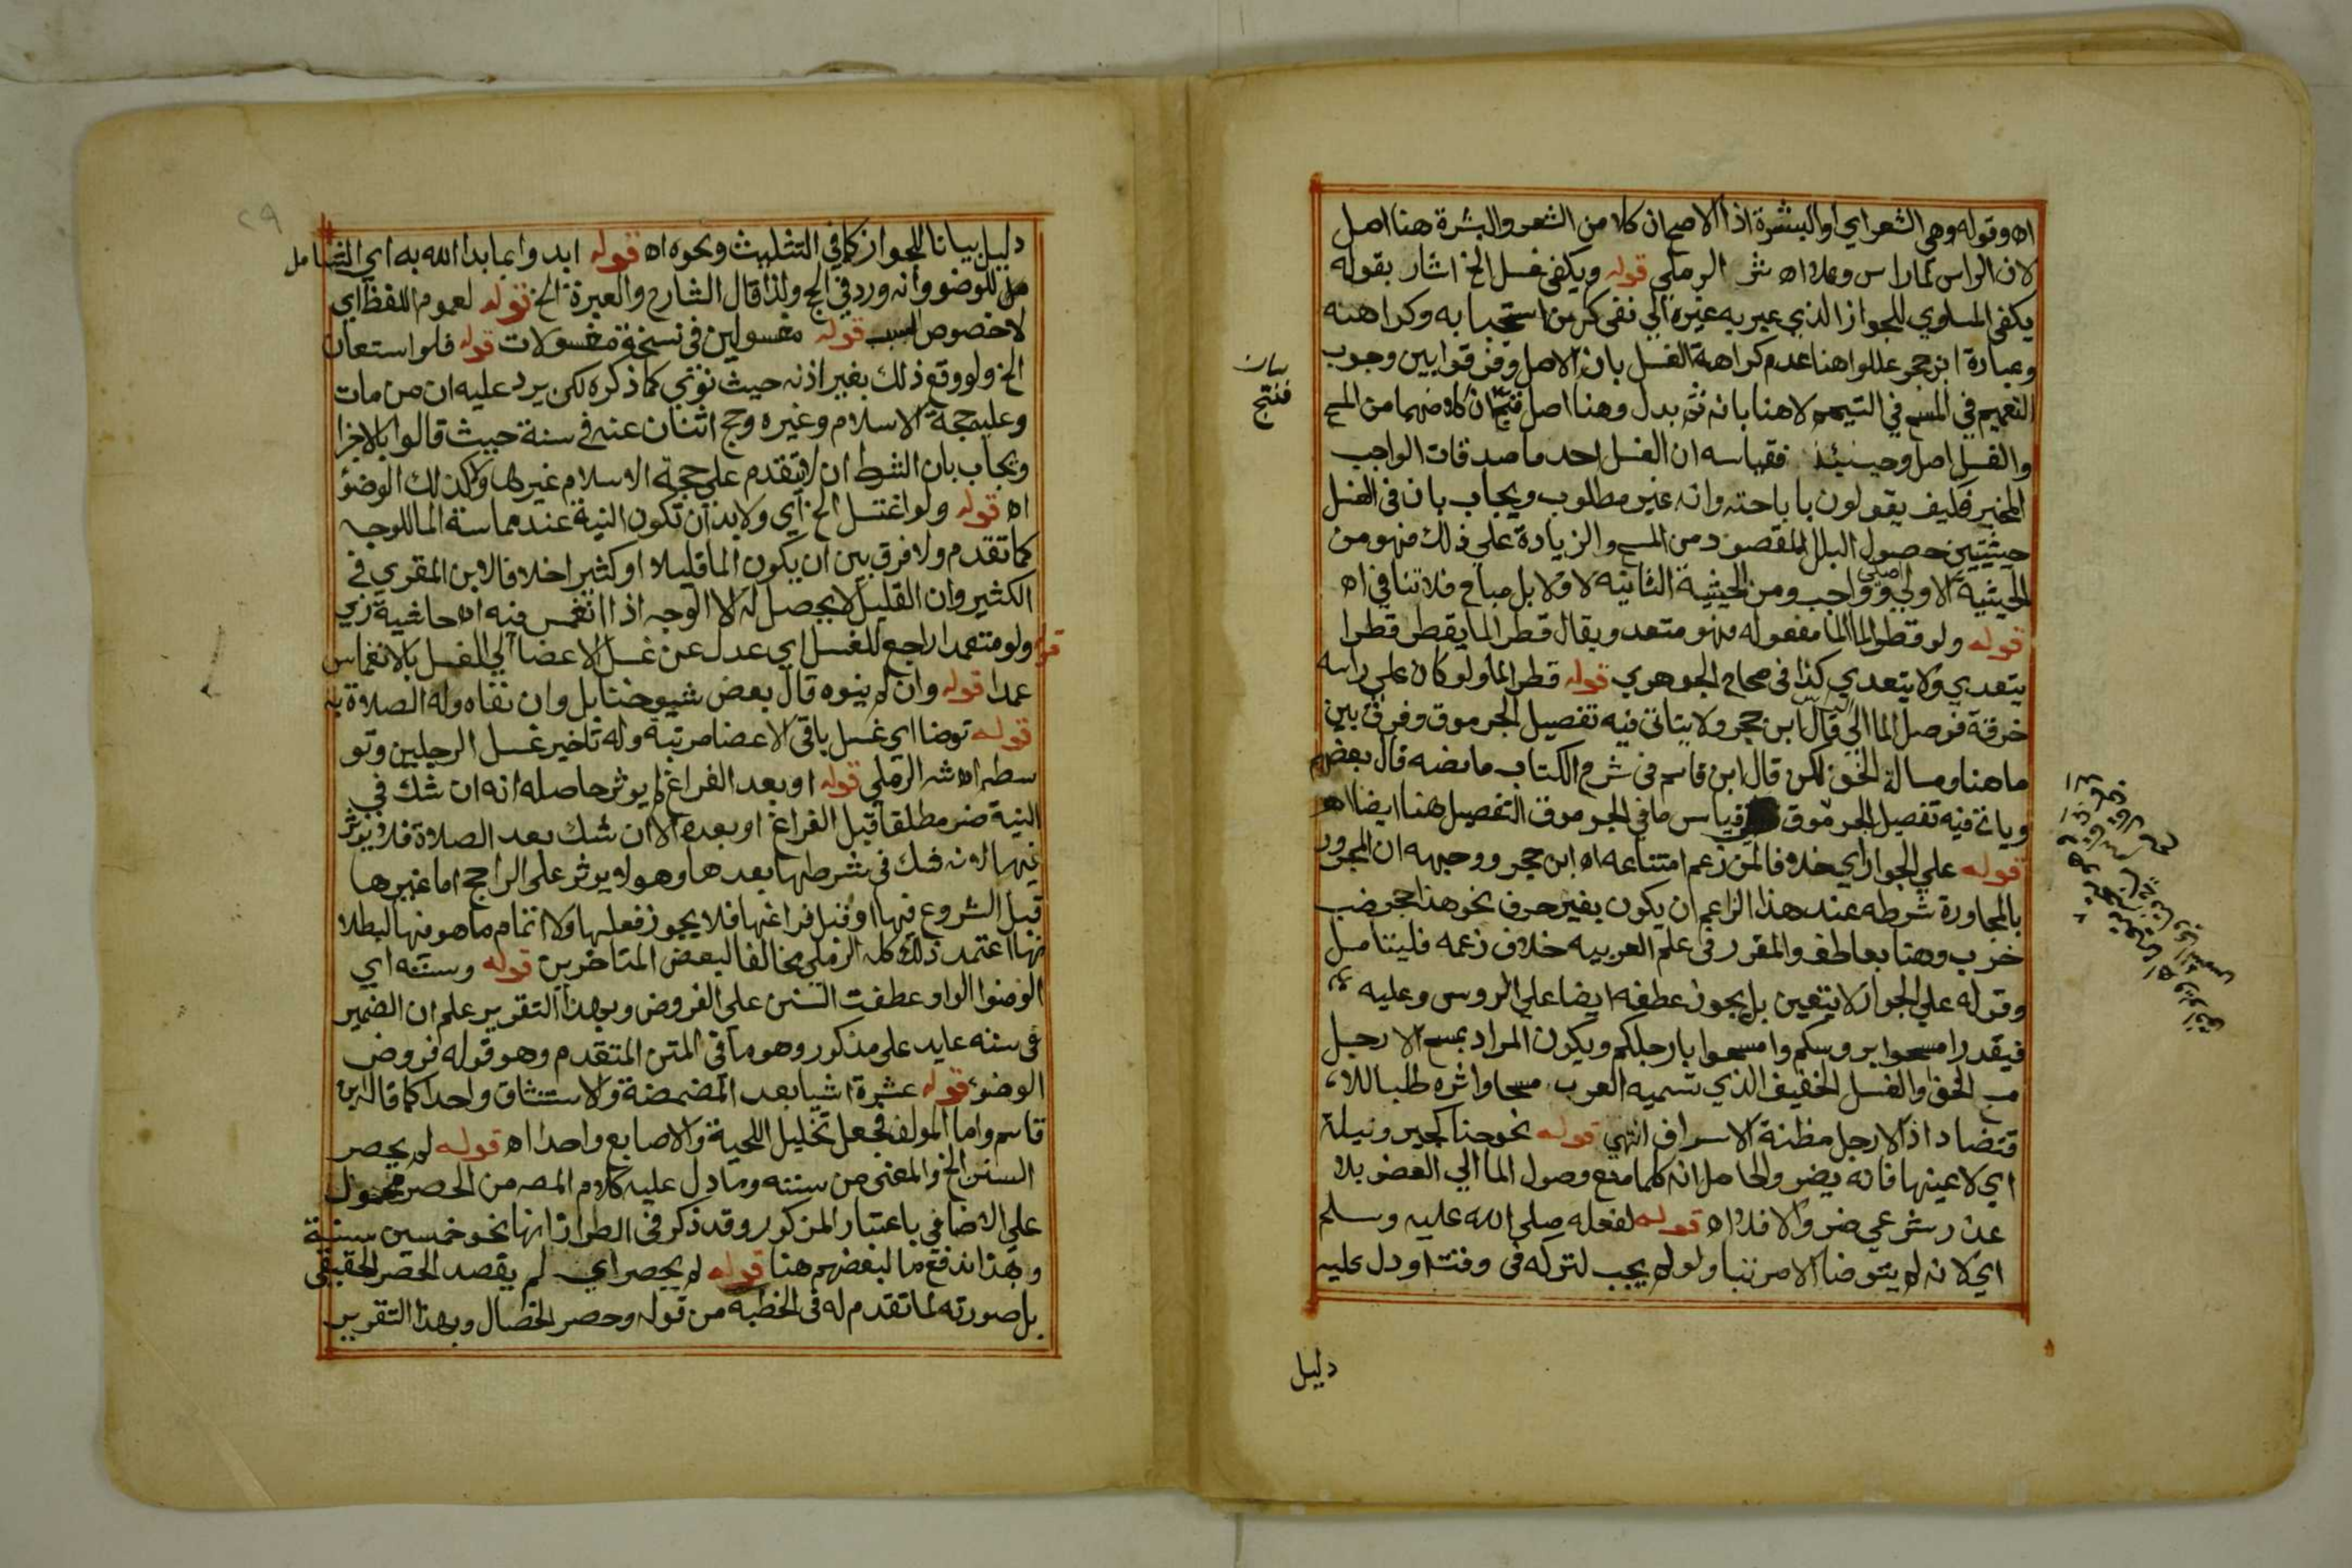 اه وقوله وهي الشعر اي او البشرة اذ الاصح ان كلا من الشعر والبشرة هنا اصل
لان الراس لما راس وعلا اه شر الرملي قوله ويكفي غسل الخ اشار بقوله
يكفي المساوي للجواز الذي عبر به غيره الي نفي كل من استحبابه وكراهته
وعبارة ابن حجر عللوا هنا عدم كراهة الغسل بانه الاصل وفرقوا بين وجوب
التعميم في المسح في التيمم لا هنا بانه ثم بدل وهنا اصل فنتج ان كلا منهما من المسح
والغسل اصل وحينئذ فقياسه ان الغسل احد ما صدقات الواجب
المخير فكيف يقولون باباحته وانه غير مطلوب ويجاب بان في الغسل
حيثيتين حصول البلل المقصود من المسح والزيادة علي ذلك فهو من
الحيثية الاولي واجب ومن الحيثية الثانية لا ولا بل مباح فلا تنافي اه
قوله ولو قطر الما الما مفعوله فهو متعد ويقال قطر الما يقطر قطرا
يتعدي ولا يتعدي كذا في صحاح الجوهري قوله قطر الما ولو كان علي راسه
خرقة فوصل الما الي قال ابن حجر ولا يتاتي فيه تفصيل الجرموق وفرق بين
ما هنا ومسالة الخف لكن قال ابن قاسم في شرح الكتاب ما نصه قال بعضهم
وياتي فيه تفصيل الجرموق فقياس ما في الجرموق التفصيل هنا ايضا اهـ
قوله علي الجوار اي خلافا لمن زعم امتناعه اه ابن حجر ووجهه ان المجرور
بالمجاورة شرطه عند هذا الزاعم ان يكون بغير حرف نحو هذا جحر ضب
خرب وهنا بعاطف والمقرر في علم العربيه خلاف زعمه فليتامل
وقوله علي الجوار لا يتعين بل يجوز عطفه ايضا علي الروس وعليه
فيقدر امسحوا بروسكم وامسحوا بارجلكم ويكون المراد بمسح الارجل
مسح الخف والغسل الخفيف الذي تسميه العرب مسحا واثره طلبا للا
قتضاد اذ الارجل مظنة الاسراف انتهي قوله نحو حنا كحبر ونيلة
اي لا عينها فانه يضر والحاصل انه كلما منع وصول الما الي العضو بلا
عذر شرعي ضر والا فلا اه قوله لفعله صلي الله عليه وسلم
اي لانه لم يتوضا الا مرتبا ولو لم يجب لتركه في وقت او دل عليه
دليل
بيان
فنتج
دليل بيانا للجواز كما في التثليث ونحوه اه قوله ابدوا بما بدا الله به اي الشامل
للوضوء وانه ورد في الحج ولذا قال الشارح والعبرة الخ قوله لعموم اللفظ اي
لا خصوص السبب قوله مغسولين في نسخة مغسولات قوله فلو استعان
الخ ولو وقع ذلك بغير اذنه حيث نوي كما ذكره لكن يرد عليه ان من مات
وعليه حجة الاسلام وغيره وحج اثنان عنه في سنة حيث قالوا بالاجزا
ويجاب بان الشرط ان لا يتقدم علي حجة الاسلام غيرها ولا كذلك الوضؤ
اه قوله ولو اغتسل الخ اي ولا بد ان تكون النية عند مماسة الما للوجه
كما تقدم ولا فرق بين ان يكون الما قليلا او كثيرا خلافا لابن المقري في
الكثير وان القليل لا يحصل له الا الوجه اذا انغمس فيه اه حاشية زي
قوله ولو متعمدا راجع للغسل اي عدل عن غسل الاعضا الي الغسل بالانغماس
عمدا قوله وان لم ينوه قال بعض شيوخنا بل وان نفاه وله الصلاة به
قوله توضا اي غسل باقي الاعضا مرتبة وله تاخير غسل الرجلين وتو
سطه اه شر الرملي قوله او بعد الفراغ لم يوثر حاصله انه ان شك في
النية ضر مطلقا قبل الفراغ او بعده الا ان شك بعد الصلاة فلا يوثر
فيها لانه شك في شرطها بعدها وهو لا يوثر علي الراجح اما غيرها
قبل الشروع فيها او قبل فراغها فلا يجوز فعلها ولا اتمام ما هو فيها لبطلا
نها اعتمد ذلك كله الرملي مخالفا لبعض المتاخرين قوله وسننه اي
الوضوا الواو عطفت السنن علي الفروض وبهذا التقرير علم ان الضمير
في سننه عايد علي مذكور وهو ما في المتن المتقدم وهو قوله فروض
الوضوء قوله عشرة اشيا بعد المضمضة والاستنشاق واحدا كما قاله ابن
قاسم واما المولف فجعل تخليل اللحية والاصابع واحدا اه قوله لم يحصر
السنن الخ والمعني من سننه وما دل عليه كلام المصـ من الحصر محمول
علي الاضافي باعتبار المذكور وقد ذكر في الطراز انها نحو خمسين سنة
وبهذا اندفع ما لبعضهم هنا قوله لم يحصر اي لم يقصد الحصر الحقيقي
بل صورته لما تقدم له في الخطبة من قوله وحصر الخصال وبهذا التقرير